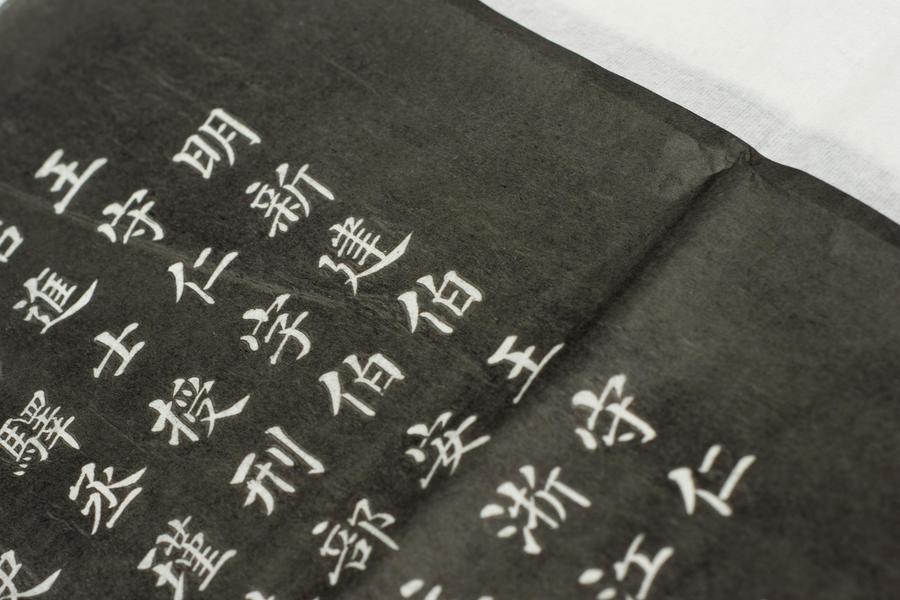 明新建伯王守仁
王守仁字伯安浙江
進士授刑部
驛丞瑾